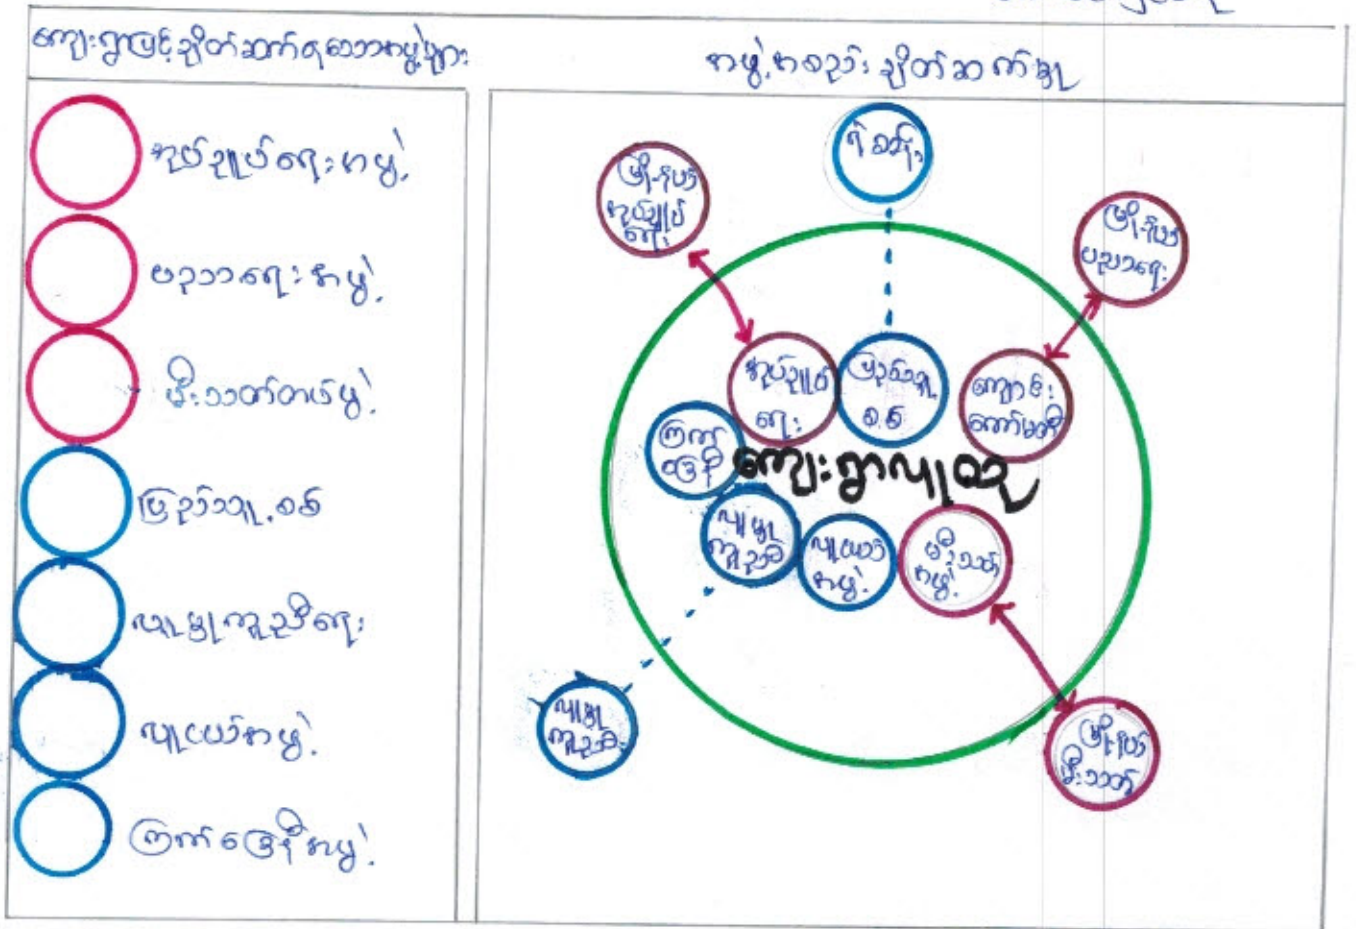 ကျေးရွာဖြင့်ချိတ်ဆက်ရသောအဖွဲ့များ
အဖွဲ့အစည်း ချိတ်ဆက်မှု
အုပ်ချုပ်ရေးအဖွဲ့
ပညာရေးအဖွဲ့
မီးသတ်တပ်ဖွဲ့
ပြည်သူ့စစ်
လူမှုကူညီရေး
လူငယ်အဖွဲ့
ကြက်ခြေနီအဖွဲ့
ရဲစခန်း
မြို့နယ်
အုပ်ချုပ်
ရေး
မြို့နယ်
ပညာရေး
အုပ်ချုပ်
ရေး
ပြည်သူ့
စစ်
ကျောင်း
ကော်မတီ
ကြက်
ခြေနီ
ကျေးရွာလူထု
လူမှု
ကူညီ
လူငယ်
အဖွဲ့
မီးသတ်
အဖွဲ့
လူမှု
ကူညီ
မြို့နယ်
မီးသတ်